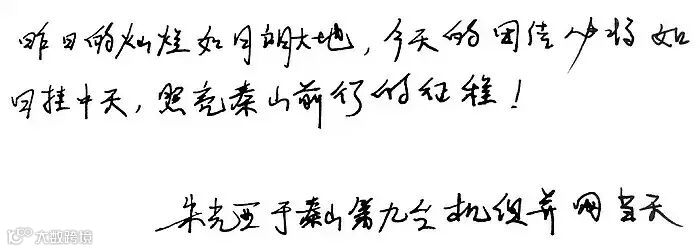 昨日的灿烂如月朗大地，今天的团结必将如
日挂中天，照亮秦山前行的征程！
朱光亚于秦山第九台机组并网当天
大数跨境